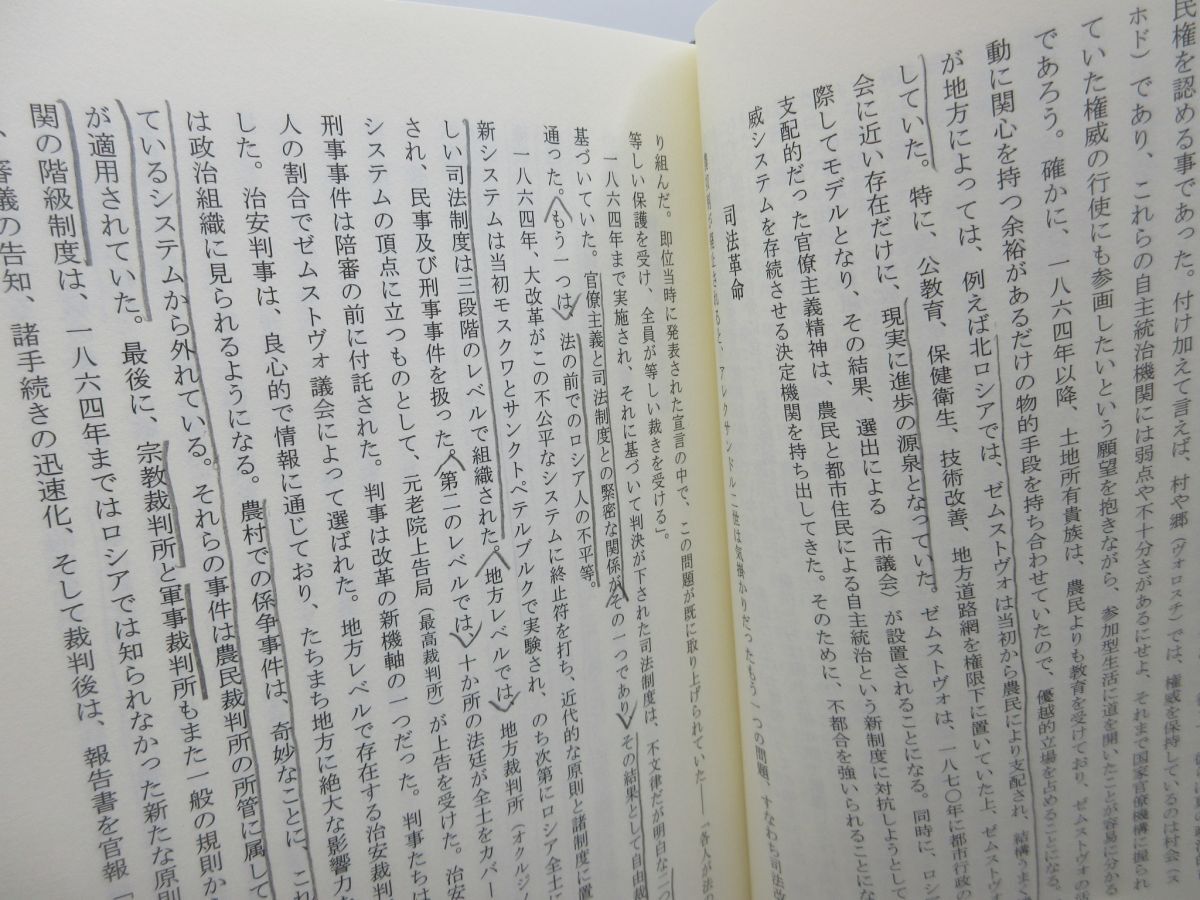 民権を認める事であった。付け加えて言えば、村や郷（ヴォロスチ）では、権威を保持しているのは村会（ス
ホド）であり、これらの自主統治機関には弱点や不十分さがあるにせよ、それまで国家官僚機構に握られ
ていた権威の行使にも参画したいという願望を抱きながら、参加型生活に道を開いたことが容易に分かる
であろう。確かに、一八六四年以降、土地所有貴族は、農民よりも教育を受けており、ゼムストヴォの活
動に関心を持つ余裕があるだけの物的手段を持ち合わせていたので、優越的立場を占めることになる。
が地方によっては、例えば北ロシアでは、ゼムストヴォは当初から農民により支配され、結構うまく
していた。特に、公教育、保健衛生、技術改善、地方道路網を権限下に置いていた上、ゼムス
会に近い存在だけに、現実に進歩の源泉となっていた。ゼムストヴォは、一八七〇年に都市行政の
際してモデルとなり、その結果、選出による〈市議会〉が設置されることになる。同時に、ロシ
支配的だった官僚主義精神は、農民と都市住民による自主統治という新制度に対抗しようとして
威システムを存続させる決定機関を持ち出してきた。そのために、不都合を強いられることにな
司法革命
されると、アレクサンドル二世は気掛かりだったもう一つの問題、すなわち司法改
り組んだ。即位当時に発表された宣言の中で、この問題が既に取り上げられていた——「各人が法の
等しい保護を受け、全員が等しい裁きを受ける」。
一八六四年まで実施され、それに基づいて判決が下された司法制度は、不文律だが明白な二つ
基づいていた。官僚主義と司法制度との緊密な関係がその一つであり、その結果として自由裁
通った。もう一つは、法の前でのロシア人の不平等。
一八六四年、大改革がこの不公平なシステムに終止符を打ち、近代的な原則と諸制度に置
新システムは当初モスクワとサンクトペテルブルクで実験され、のち次第にロシア全土に
しい司法制度は三段階のレベルで組織された。地方レベルでは、地方裁判所（オクルジノ
され、民事及び刑事事件を扱った。第二のレベルでは、十か所の法廷が全土をカバー
システムの頂点に立つものとして、元老院上告局（最高裁判所）が上告を受けた。治安
刑事事件は陪審の前に付託された。判事は改革の新機軸の一つだった。判事たちは
人の割合でゼムストヴォ議会によって選ばれた。地方レベルで存在する治安裁判
した。治安判事は、良心的で情報に通じており、たちまち地方に絶大な影響力
は政治組織に見られるようになる。農村での係争事件は、奇妙なことに、これ
ているシステムから外れている。それらの事件は農民裁判所の所管に属して
が適用されていた。最後に、宗教裁判所と軍事裁判所もまた一般の規則か
関の階級制度は、一八六四年まではロシアでは知られなかった新たな原則
、審議の告知、諸手続きの迅速化、そして裁判後は、報告書を官報「